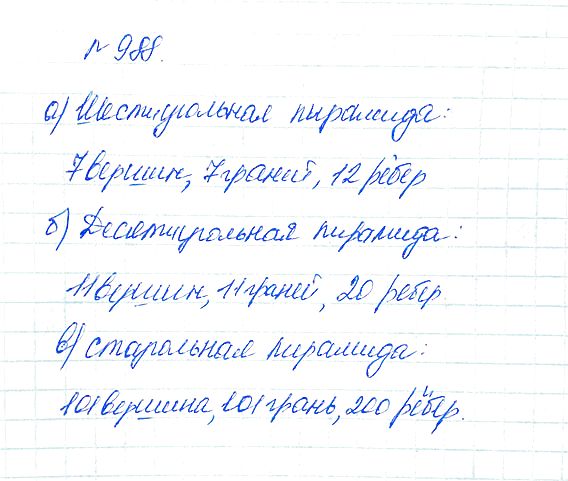 № 988.
а) Шестиугольная пирамида:
7 вершин, 7 граней, 12 рёбер
б) Десятиугольная пирамида:
11 вершин, 11 граней, 20 ребер
в) стоугольная пирамида:
101 вершина, 101 грань, 200 рёбер.